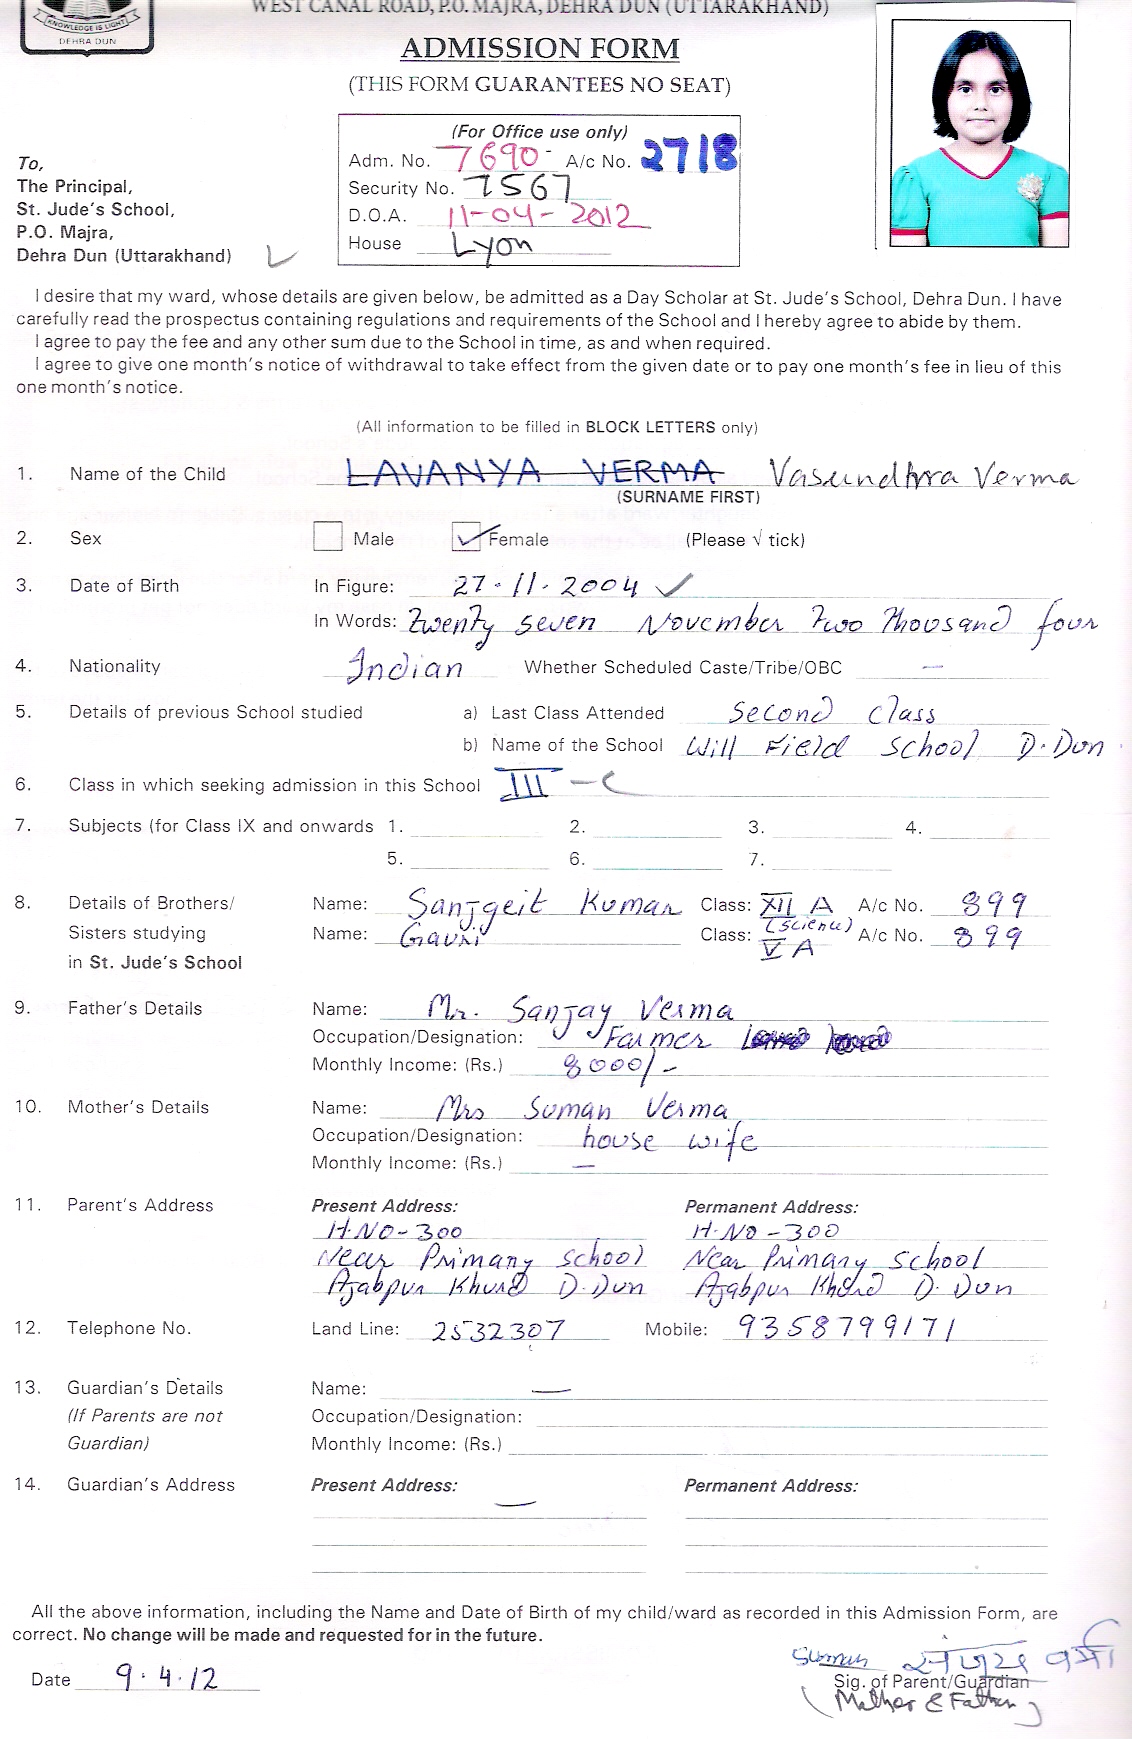 KNOWLEDGE IS LIGHT
DEHRA DUN
WEST CANAL ROAD, P.O. MAJRA, DEHRA DUN (UTTARAKHAND)
ADMISSION FORM
(THIS FORM GUARANTEES NO SEAT)
(For Office use only)
Adm. No. 7690- A/c No. 2718
Security No. 7567
D.O.A. 11-04-2012
House Lyon
To,
The Principal,
St. Jude's School,
P.O. Majra,
Dehra Dun (Uttarakhand)
I desire that my ward, whose details are given below, be admitted as a Day Scholar at St. Jude's School, Dehra Dun. I have
carefully read the prospectus containing regulations and requirements of the School and I hereby agree to abide by them.
I agree to pay the fee and any other sum due to the School in time, as and when required.
I agree to give one month's notice of withdrawal to take effect from the given date or to pay one month's fee in lieu of this
one month's notice.
(All information to be filled in BLOCK LETTERS only)
1. Name of the Child LAVANYA VERMA Vasundhra Verma
(SURNAME FIRST)
2. Sex Male Female (Please √ tick)
3. Date of Birth In Figure: 27-11-2004 ✓
In Words: Twenty seven November Two Thousand four
4. Nationality Indian Whether Scheduled Caste/Tribe/OBC —
5. Details of previous School studied a) Last Class Attended Second Class
b) Name of the School Will Field School D.Dun
6. Class in which seeking admission in this School III - C
7. Subjects (for Class IX and onwards 1. 2. 3. 4.
5. 6. 7.
8. Details of Brothers/ Name: Sanjgeit Kumar Class: XII A A/c No. 899
(Science)
Sisters studying Name: Gauri Class: V A A/c No. 899
in St. Jude's School
9. Father's Details Name: Mr. Sanjay Verma
Occupation/Designation: Farmer
Monthly Income: (Rs.) 8000/-
10. Mother's Details Name: Mrs Suman Verma
Occupation/Designation: house wife
Monthly Income: (Rs.) —
11. Parent's Address Present Address: Permanent Address:
H.NO-300 H.NO-300
Near Primary School Near Primary School
Ajabpur Khurd D.Dun Ajabpur Khurd D.Dun
12. Telephone No. Land Line: 2532307 Mobile: 9358799171
13. Guardian's Details Name: —
(If Parents are not Occupation/Designation:
Guardian) Monthly Income: (Rs.)
14. Guardian's Address Present Address: Permanent Address:
—
All the above information, including the Name and Date of Birth of my child/ward as recorded in this Admission Form, are
correct. No change will be made and requested for in the future.
Suman वर्मा
Date 9.4.12 Sig. of Parent/Guardian
(Mother & Father)